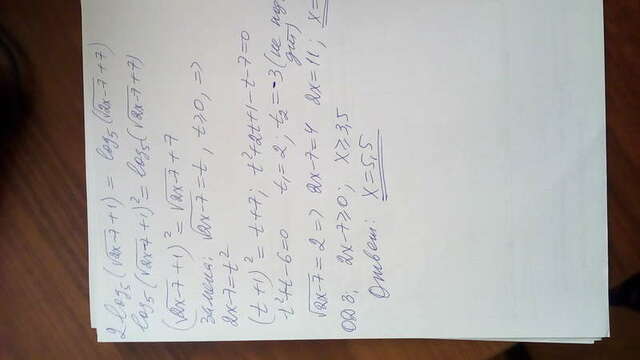 2 log₅(√2x-7 + 1) = log₅(√2x-7 + 7)
log₅(√2x-7 + 1)² = log₅(√2x-7 + 7)
(√2x-7 + 1)² = √2x-7 + 7
Замена: √2x-7 = t, t ≥ 0, =>
2x-7 = t²
(t + 1)² = t+7; t²+2t+1-t-7=0
t²+t-6=0 t₁ = 2; t₂ = -3 (не под
√2x-7 = 2 => 2x-7=4 2x = 11; x=
ОДЗ; 2x-7≥0; x ≥ 3,5
Ответ: x = 5,5